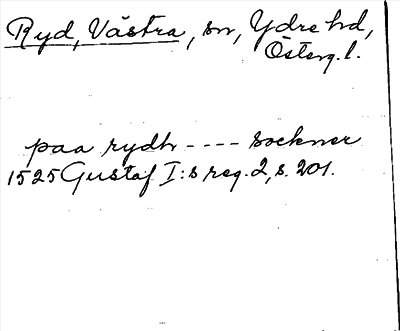 Ryd, Västra, sn, Ydre hd,
Österg. l.
paa rydh ---- sockner
1525 Gustaf I:s reg. 2, s. 201.